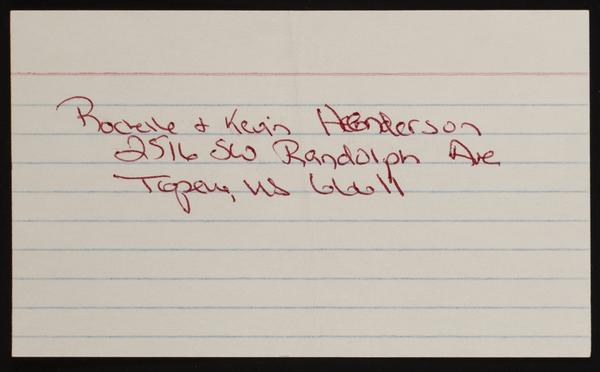 Rochelle & Kevin Henderson
2516 SW Randolph Ave
Topeka, KS 66611